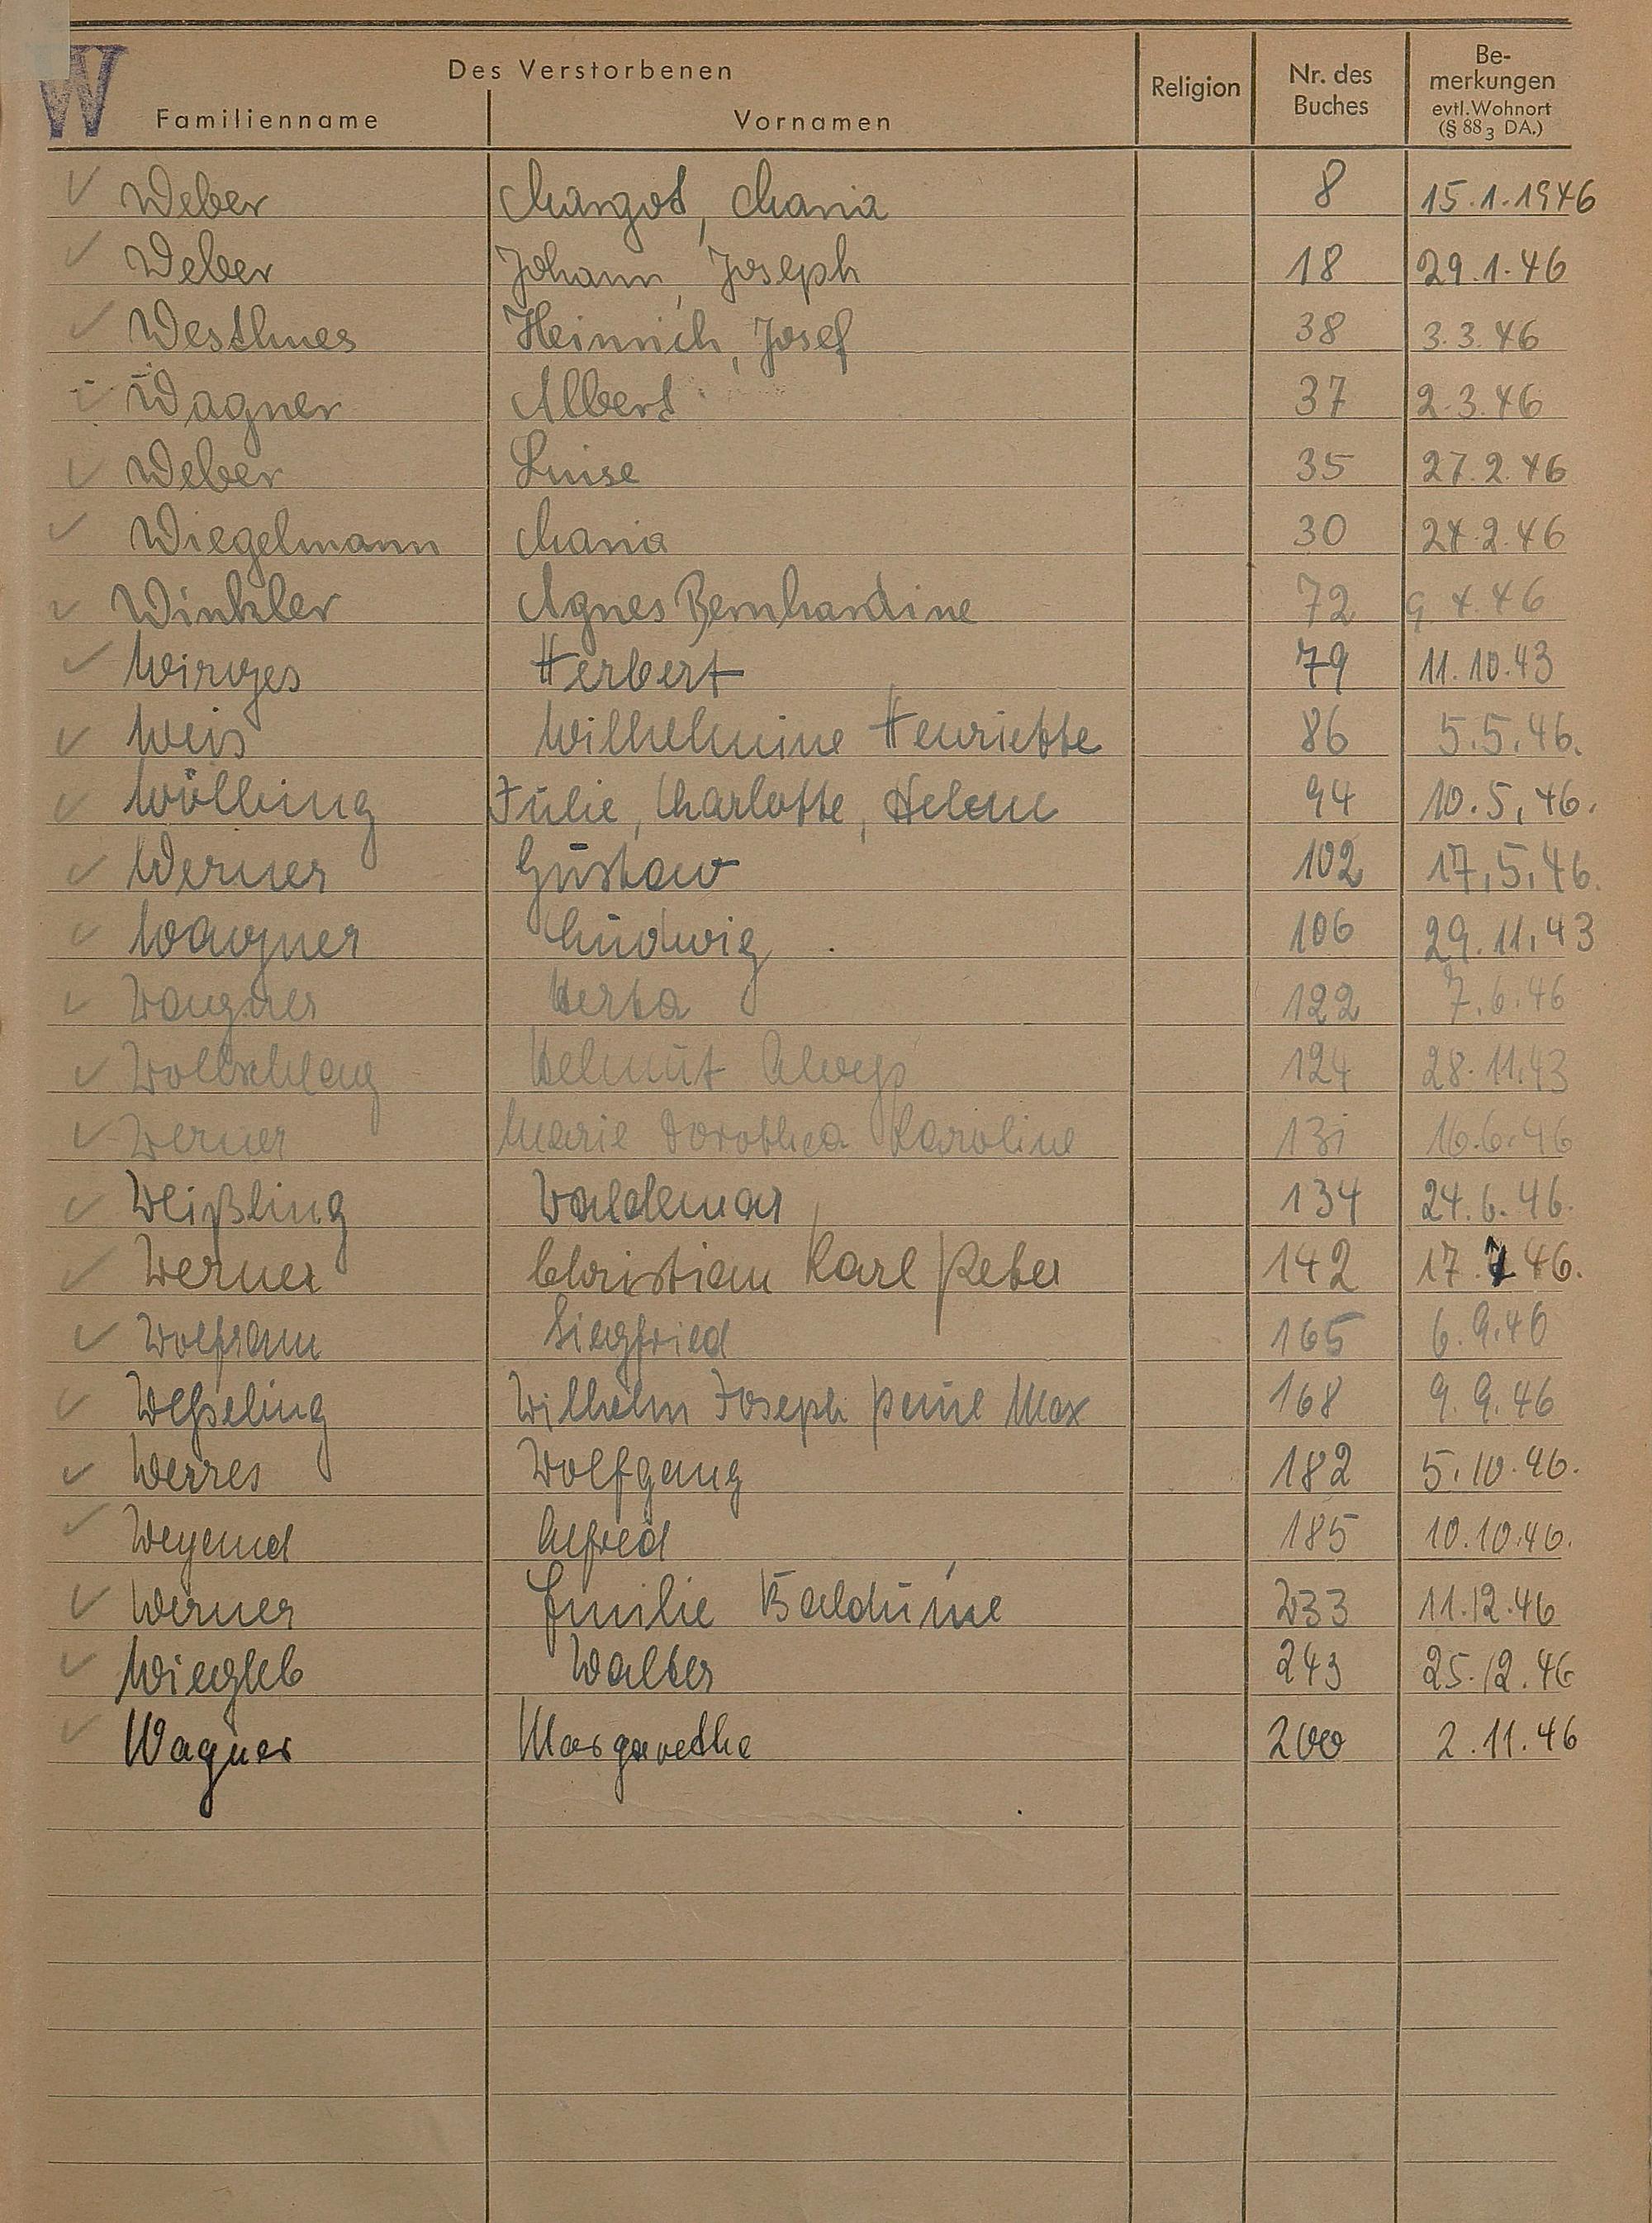 W
Des Verstorbenen
Familienname Vornamen Religion Nr. des Buches Be-merkungen evtl. Wohnort (§ 88 3 DA.)
✓ Weber Margot, Maria 8 15.1.1946
✓ Weber Johann, Joseph 18 29.1.46
✓ Westhues Heinrich, Josef 38 3.3.46
✓ Wagner Albert 37 2.3.46
✓ Weber Luise 35 27.2.46
✓ Wiegelmann Maria 30 24.2.46
✓ Winkler Agnes Bernhardine 72 9 4.46
✓ Wirges Herbert 79 11.10.43
✓ Weis Wilhelmine Henriette 86 5.5.46.
✓ Wölbing Julie, Charlotte, Helene 94 10.5.46.
✓ Werner Gustav 102 17.5.46.
✓ Wagner Ludwig 106 29.11.43
✓ Wagner Herta 122 7.6.46
✓ Wollschlag Helmut Aloys 124 28.11.43
✓ Werner Marie Dorothea Karoline 131 16.6.46
✓ Weißling Waldemar 134 24.6.46.
✓ Werner Christian Karl Peter 142 17.7.46.
✓ Wolfram Siegfried 165 6.9.46
✓ Weßeling Wilhelm Joseph Paul Max 168 9.9.46
✓ Werres Wolfgang 182 5.10.46.
✓ Weyand Alfred 185 10.10.46.
✓ Werner Emilie 233 11.12.46
✓ Wiegleb Walter 243 25.12.46
✓ Wagner Margarethe 200 2.11.46